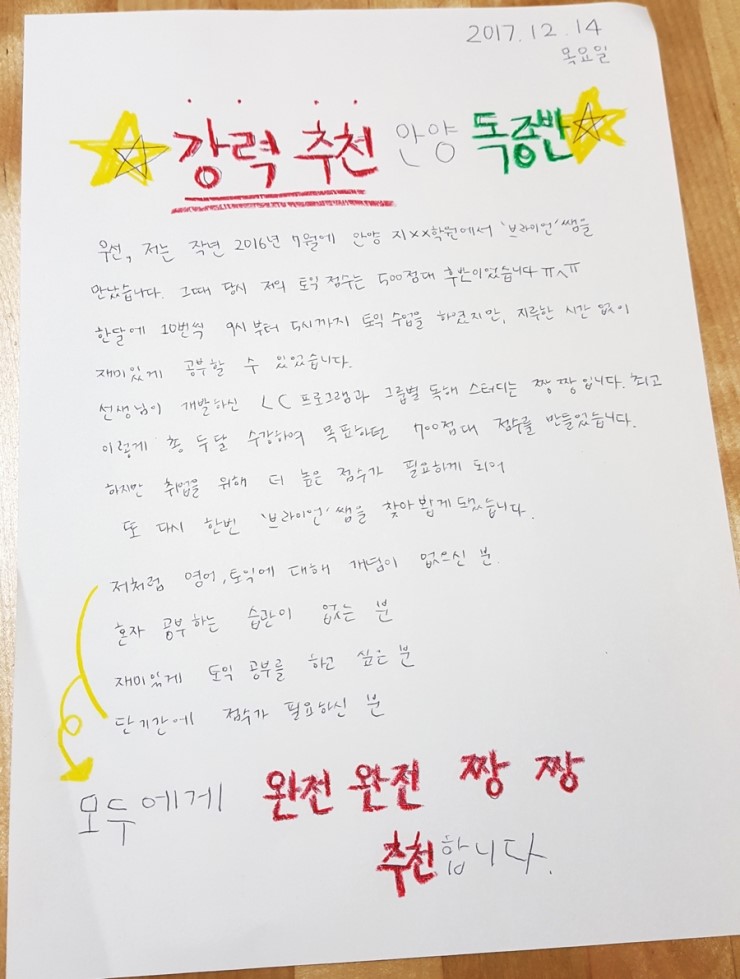 2017.12.14
목요일
강력 추천 안양 독종반
우선, 저는 작년 2016년 7월에 안양 지××학원에서 '브라이언' 쌤을
만났습니다. 그때 당시 저의 토익 점수는 500점대 후반이었습니다 ㅠ^ㅠ
한달에 10번씩 9시부터 5시까지 토익 수업을 하였지만, 지루한 시간 없이
재미있게 공부할 수 있었습니다.
선생님이 개발하신 LC 프로그램과 그룹별 독해 스터디는 짱 짱 입니다. 최고
이렇게 총 두달 수강하여 목표하던 700점대 점수를 만들었습니다.
하지만 취업을 위해 더 높은 점수가 필요하게 되어
또 다시 한번 '브라이언' 쌤을 찾아 뵙게 됐습니다.
저처럼 영어, 토익에 대해 개념이 없으신 분.
혼자 공부하는 습관이 없는 분
재미있게 토익 공부를 하고 싶은 분
단기간에 점수가 필요하신 분
모두에게 완전 완전 짱 짱
추천합니다.